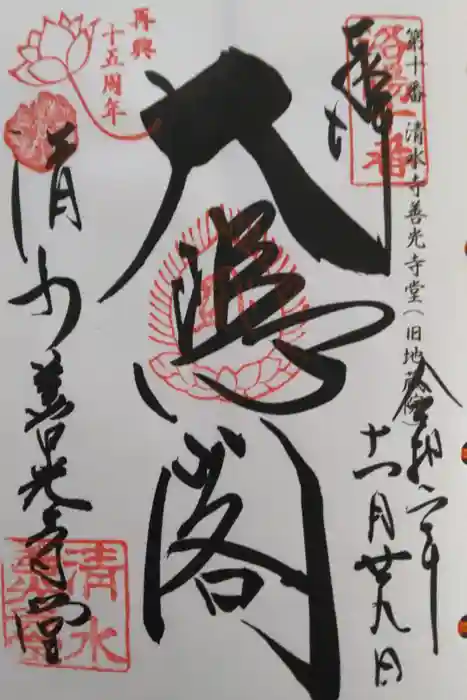 第十番 清水寺善光寺堂(旧地蔵院)
奉拝
洛陽十番
令和二年
十一月廿九日
大悲閣
再興
十五周年
清水善光寺堂
清水